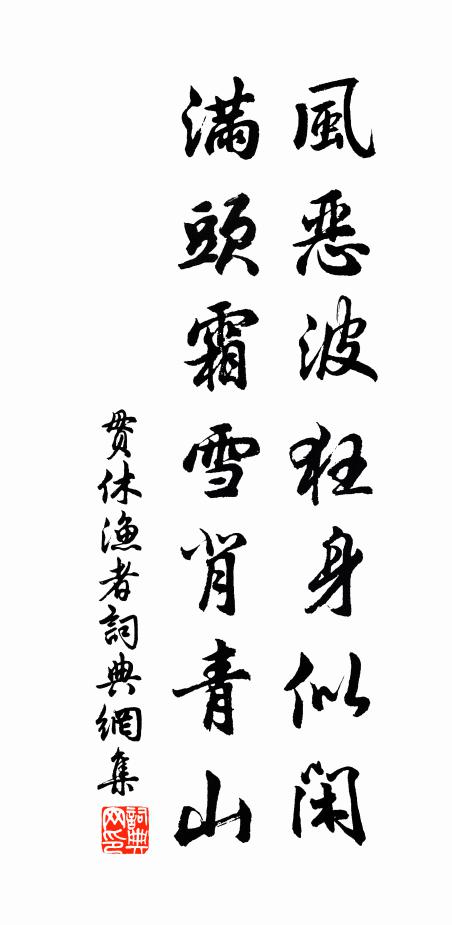 風惡波狂身似閑
滿頭霜雪背青山
貫休漁者詞典網集
詞典网印